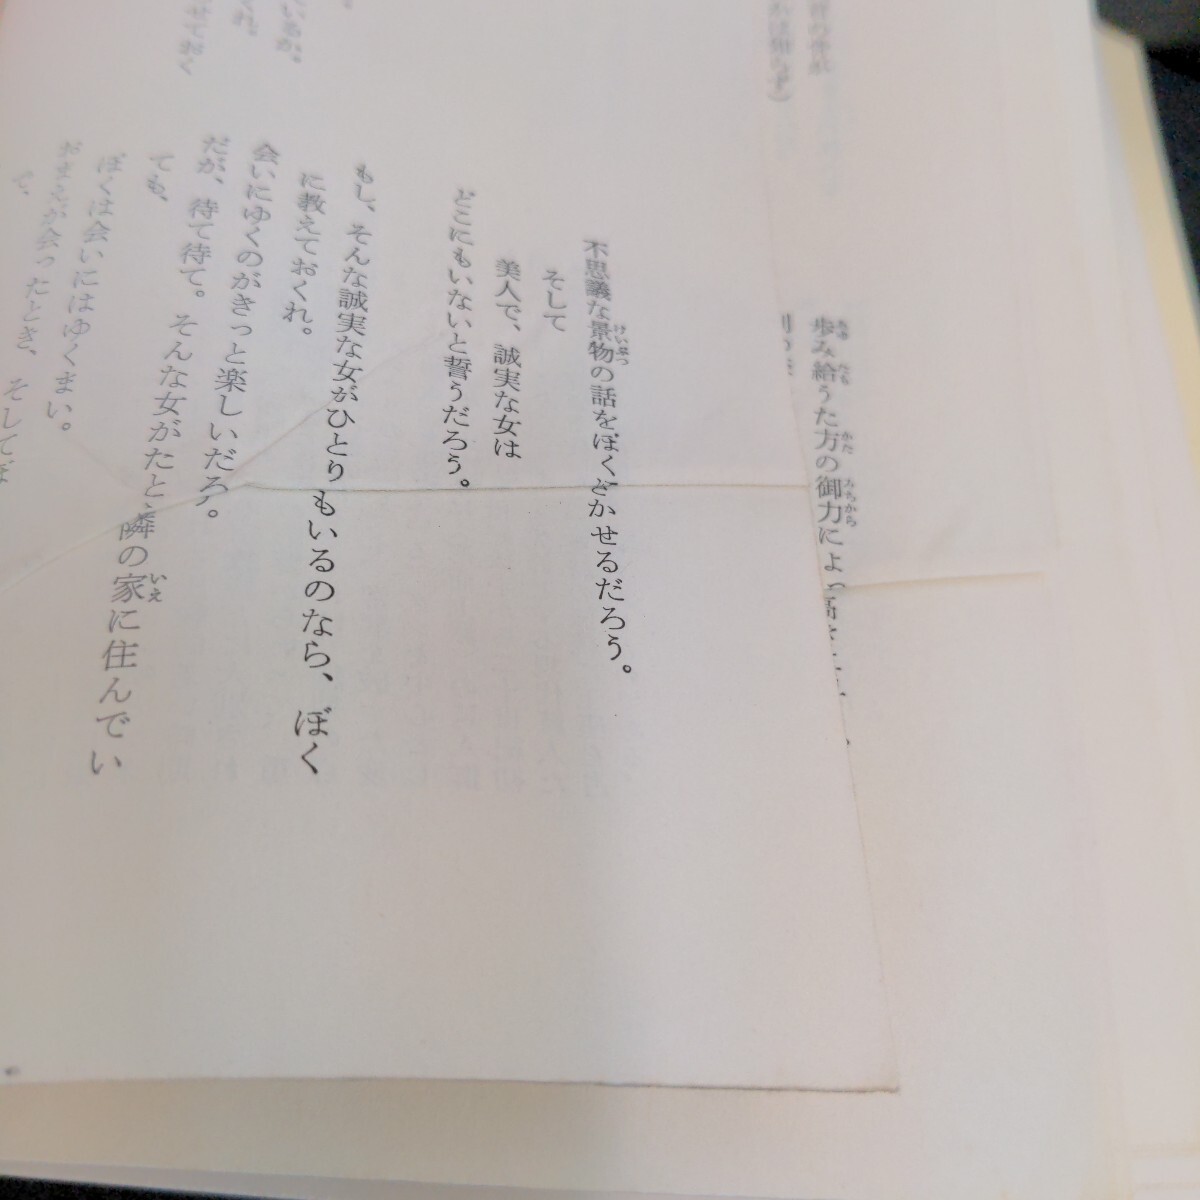 歩み給うた方の御力によ
不思議な景物の話をぼくにきかせるだろう。
そして
美人で、誠実な女は
どこにもいないと誓うだろう。
もし、そんな誠実な女がひとりもいるのなら、ぼく
に教えておくれ。
会いにゆくのがきっと楽しいだろう。
だが、待て待て。そんな女がたとえ隣の家に住んでい
ても、
ぼくは会いにはゆくまい。
おまえが会ったとき、そしてぼ
で、
いるか。
くれ。
せておく